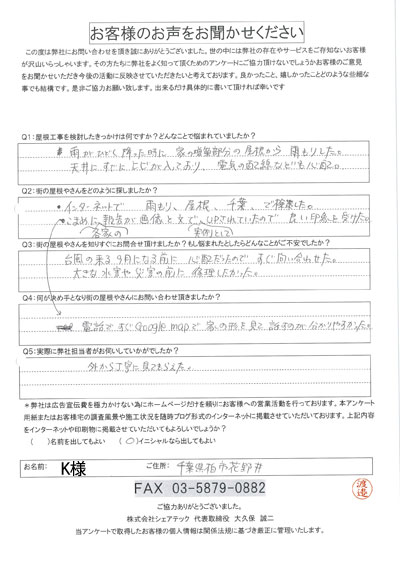 お客様のお声をお聞かせください
この度は弊社にお問い合わせを頂き誠にありがとうございました。世の中には弊社の存在やサービスをご存知ないお客様
が沢山いらっしゃいます。その方たちに弊社をよく知って頂くためのアンケートにご協力頂けないでしょうかお客様のご意見
をお聞かせいただき今後の活動に反映させていただきたいと考えております。良かったこと、嬉しかったことどのような些細な
事でも結構です。是非ご協力お願い致します。出来るだけ具体的に書いて頂ければ幸いです
Q1:屋根工事を検討したきっかけは何ですか？どんなことで悩まれていましたか？
・雨がひどく降った時に 家の増築部分の屋根から 雨もりした。
天井にすじに入っており、電気の配線なども心配。
Q2:街の屋根やさんをどのように探しましたか？
・インターネットで 雨もり、屋根、千葉、で検索した。
・こまめに報告が画像と文でUPされていたので 良い印象を受けた。
各家の 実例として
Q3:街の屋根やさんを知りすぐにお問合せ頂けましたか？もし悩まれたとしたらどんなことがご不安でしたか？
台風の来る9月になる前に 心配だったので すぐ問い合わせた。
大きな水害や災害の前に 修理したかった。
Q4:何が決め手となり街の屋根やさんにお問い合わせ頂きましたか？
電話ですぐGoogle mapで 家の形を見て 話すのが分かりやすかった。
Q5:実際に弊社担当者がお伺いしていかがでしたか？
外から丁寧に見てもらえた。
＊弊社は広告宣伝費を極力かけない為にホームページだけを頼りにお客様への営業活動を行っております。本アンケート
用紙またはお客様宅の調査風景や施工状況を随時ブログ形式のインターネットに掲載させていただいております。上記内容
をインターネットや印刷物に掲載させていただいてもよろしいでしょうか？
（ ）名前を出してもよい （○）イニシャルなら出してもよい
お名前： K様 ご住所： 千葉県柏市花野井
FAX 03-5879-0882
渡邉
ご協力ありがとうございました。
株式会社シェアテック 代表取締役 大久保 誠二
当アンケートで取得したお客様の個人情報は関係法規に基づき厳正に管理いたします。